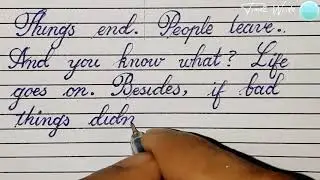 Things end. People leave..
And you know what? Life
goes on. Besides, if bad
things didn